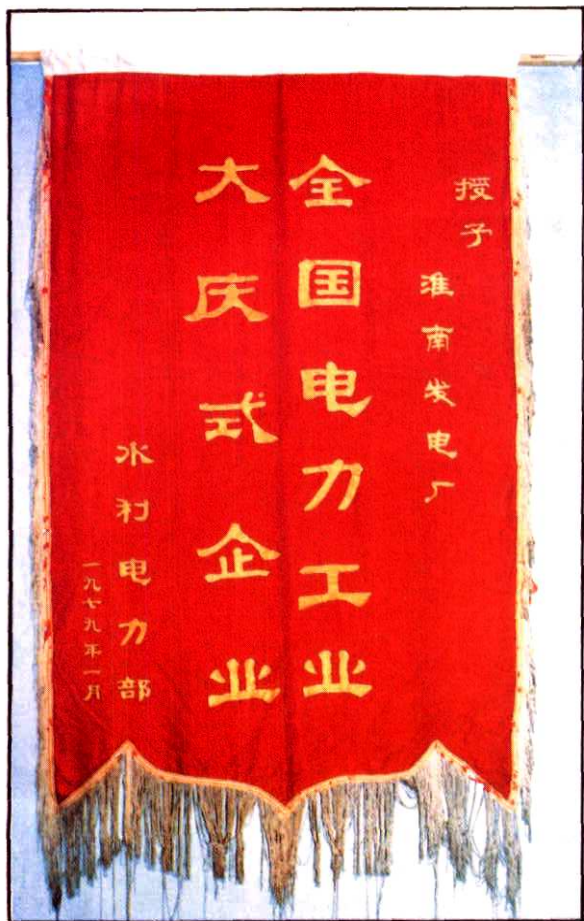 授予
淮南发电厂
全国电力工业
大庆式企业
水利电力部
一九七九年一月